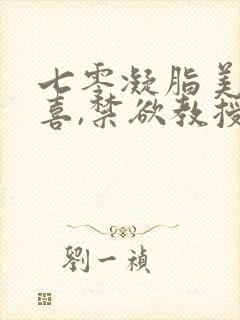 七零凝脂美
喜,禁欲教授
劉一禎